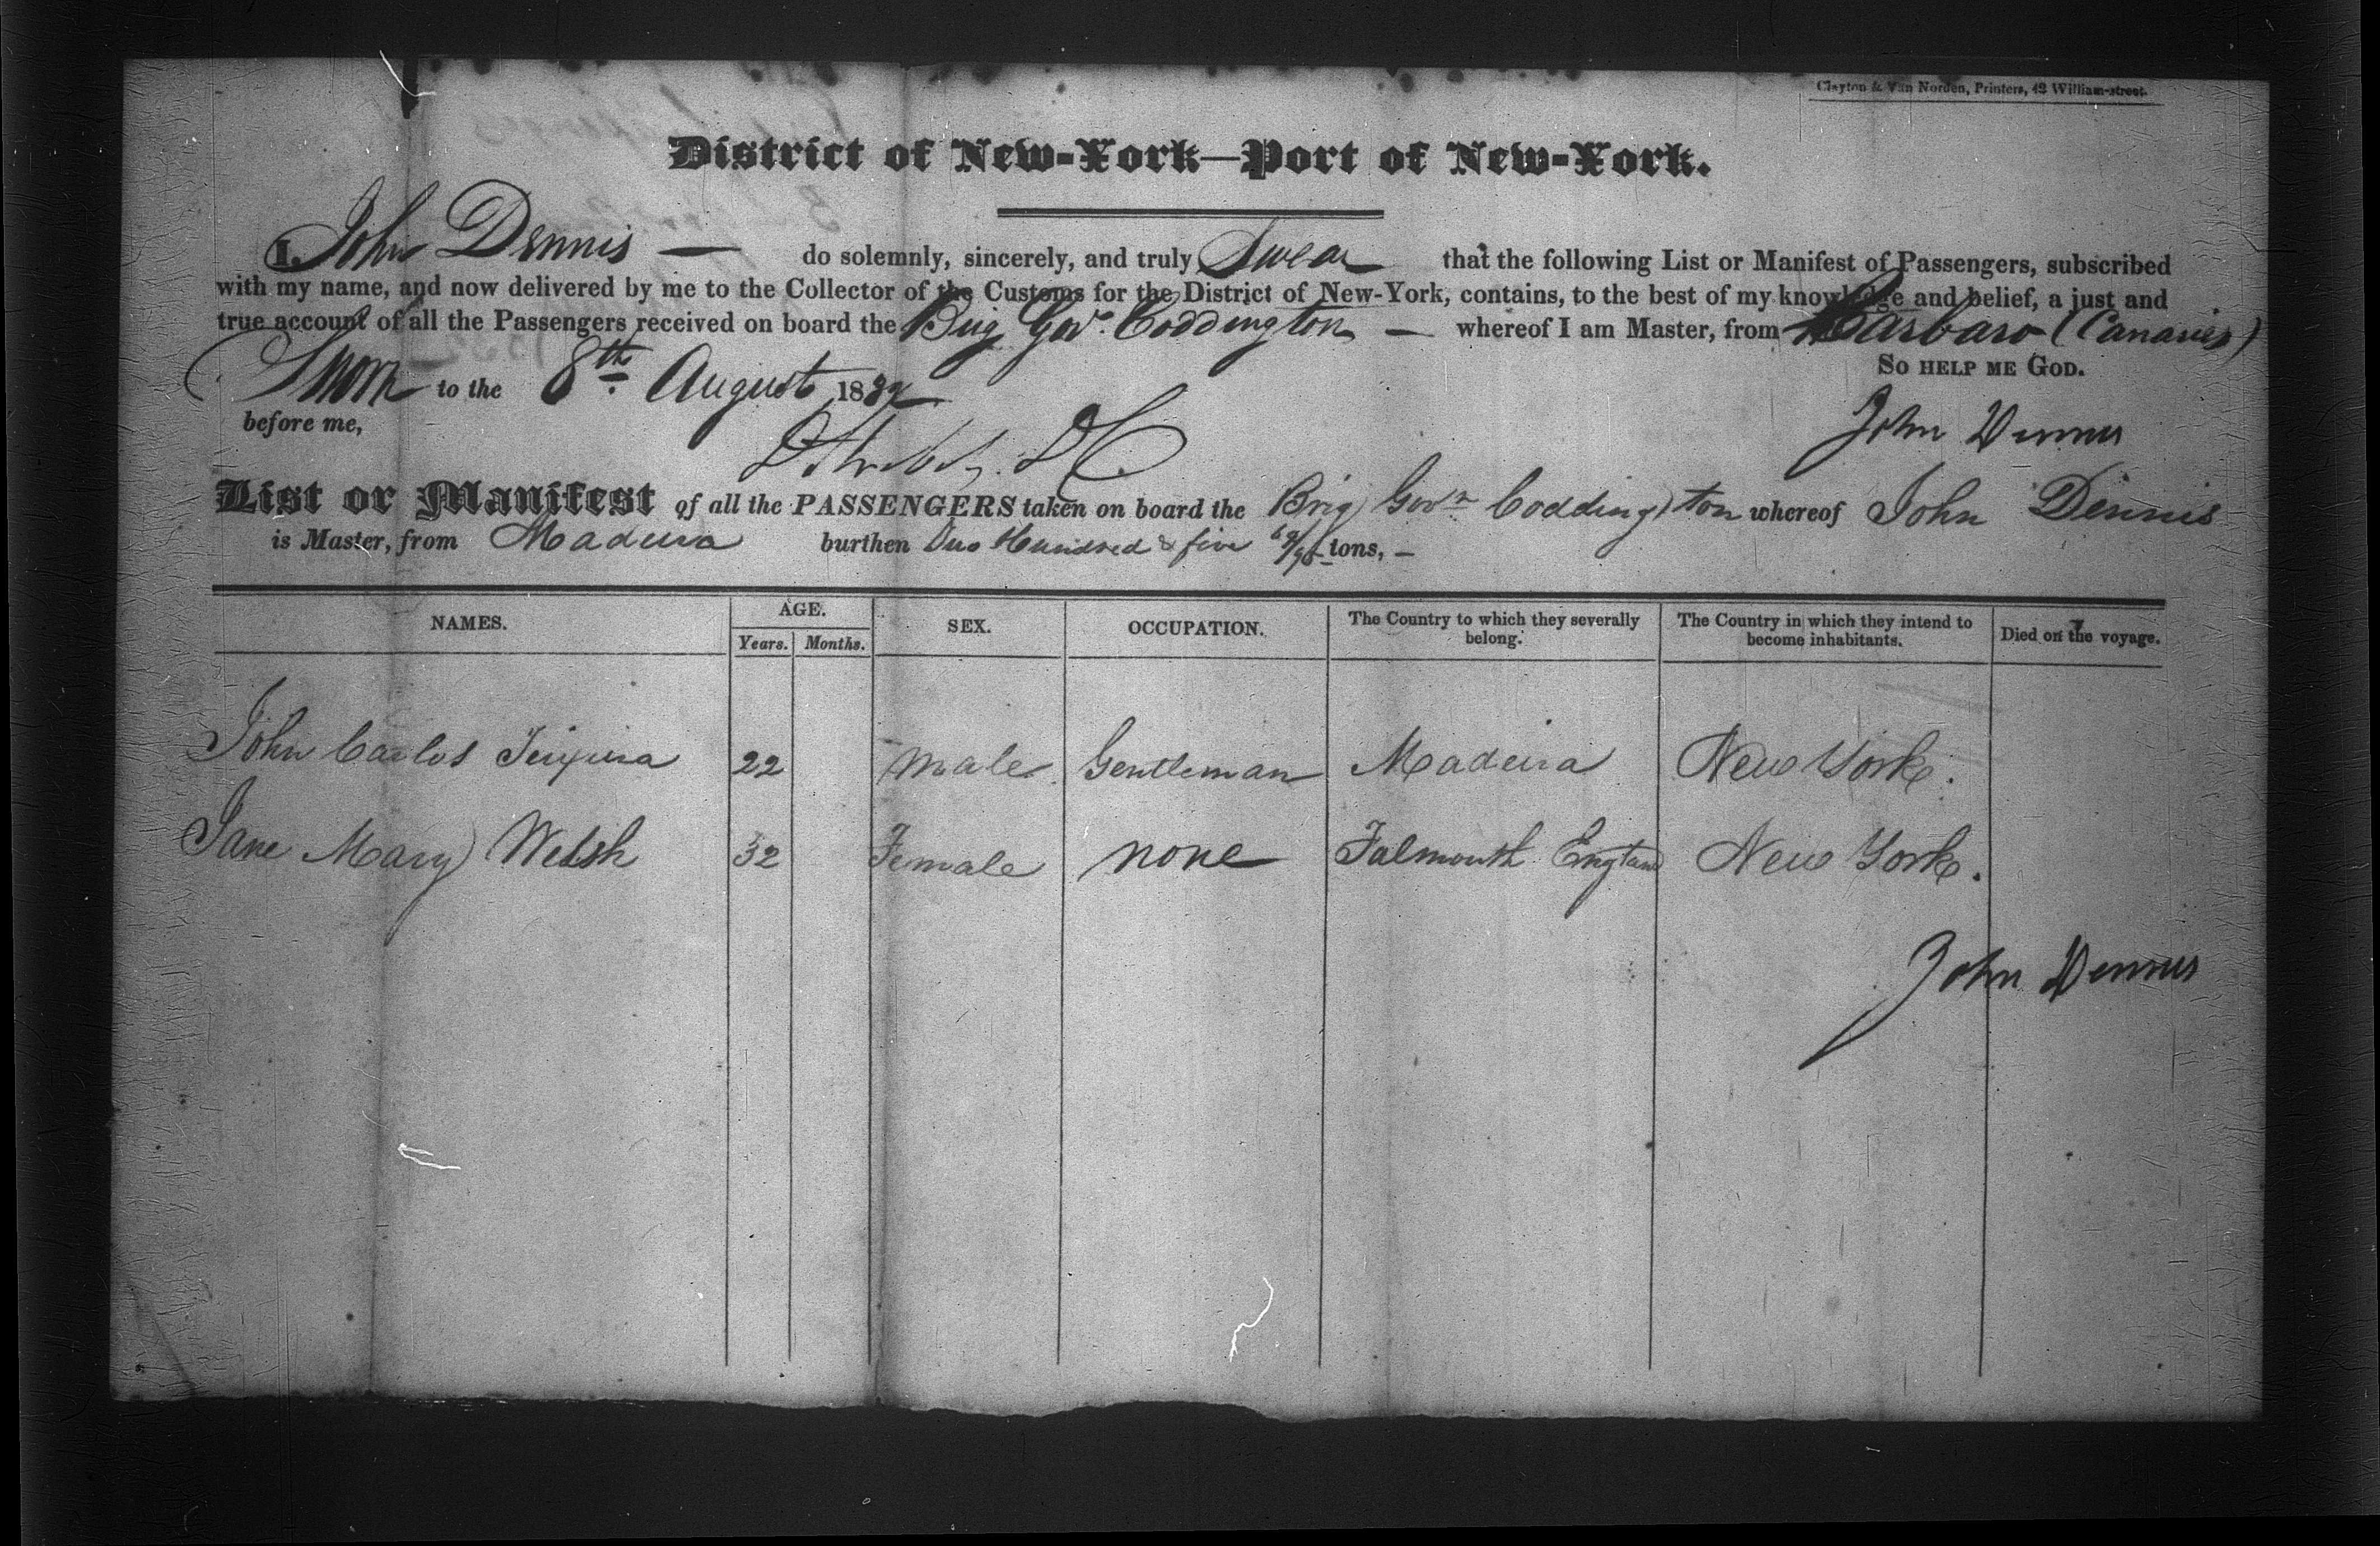 Clayton & Van Norden, Printers, 42 William-street.
District of New-York—Port of New-York.
I, John Dennis — do solemnly, sincerely, and truly Swear that the following List or Manifest of Passengers, subscribed
with my name, and now delivered by me to the Collector of the Customs for the District of New-York, contains, to the best of my knowledge and belief, a just and
true account of all the Passengers received on board the Brig Govr. Coddington — whereof I am Master, from (Canaries)
So help me God.
Sworn to the 8th. August 1832
before me,
John Dennis
List or Manifest of all the PASSENGERS taken on board the Brig Govr Coddington whereof John Dennis
is Master, from Madeira burthen Two Hundred & five tons, –
NAMES. AGE. SEX. OCCUPATION. The Country to which they severally belong. The Country in which they intend to become inhabitants. Died on the voyage.
Years. Months.
John Carlos Teixeira 22 Male Gentleman Madeira New York.
Jane Mary Welsh 32 Female none Falmouth England New York.
John Dennis